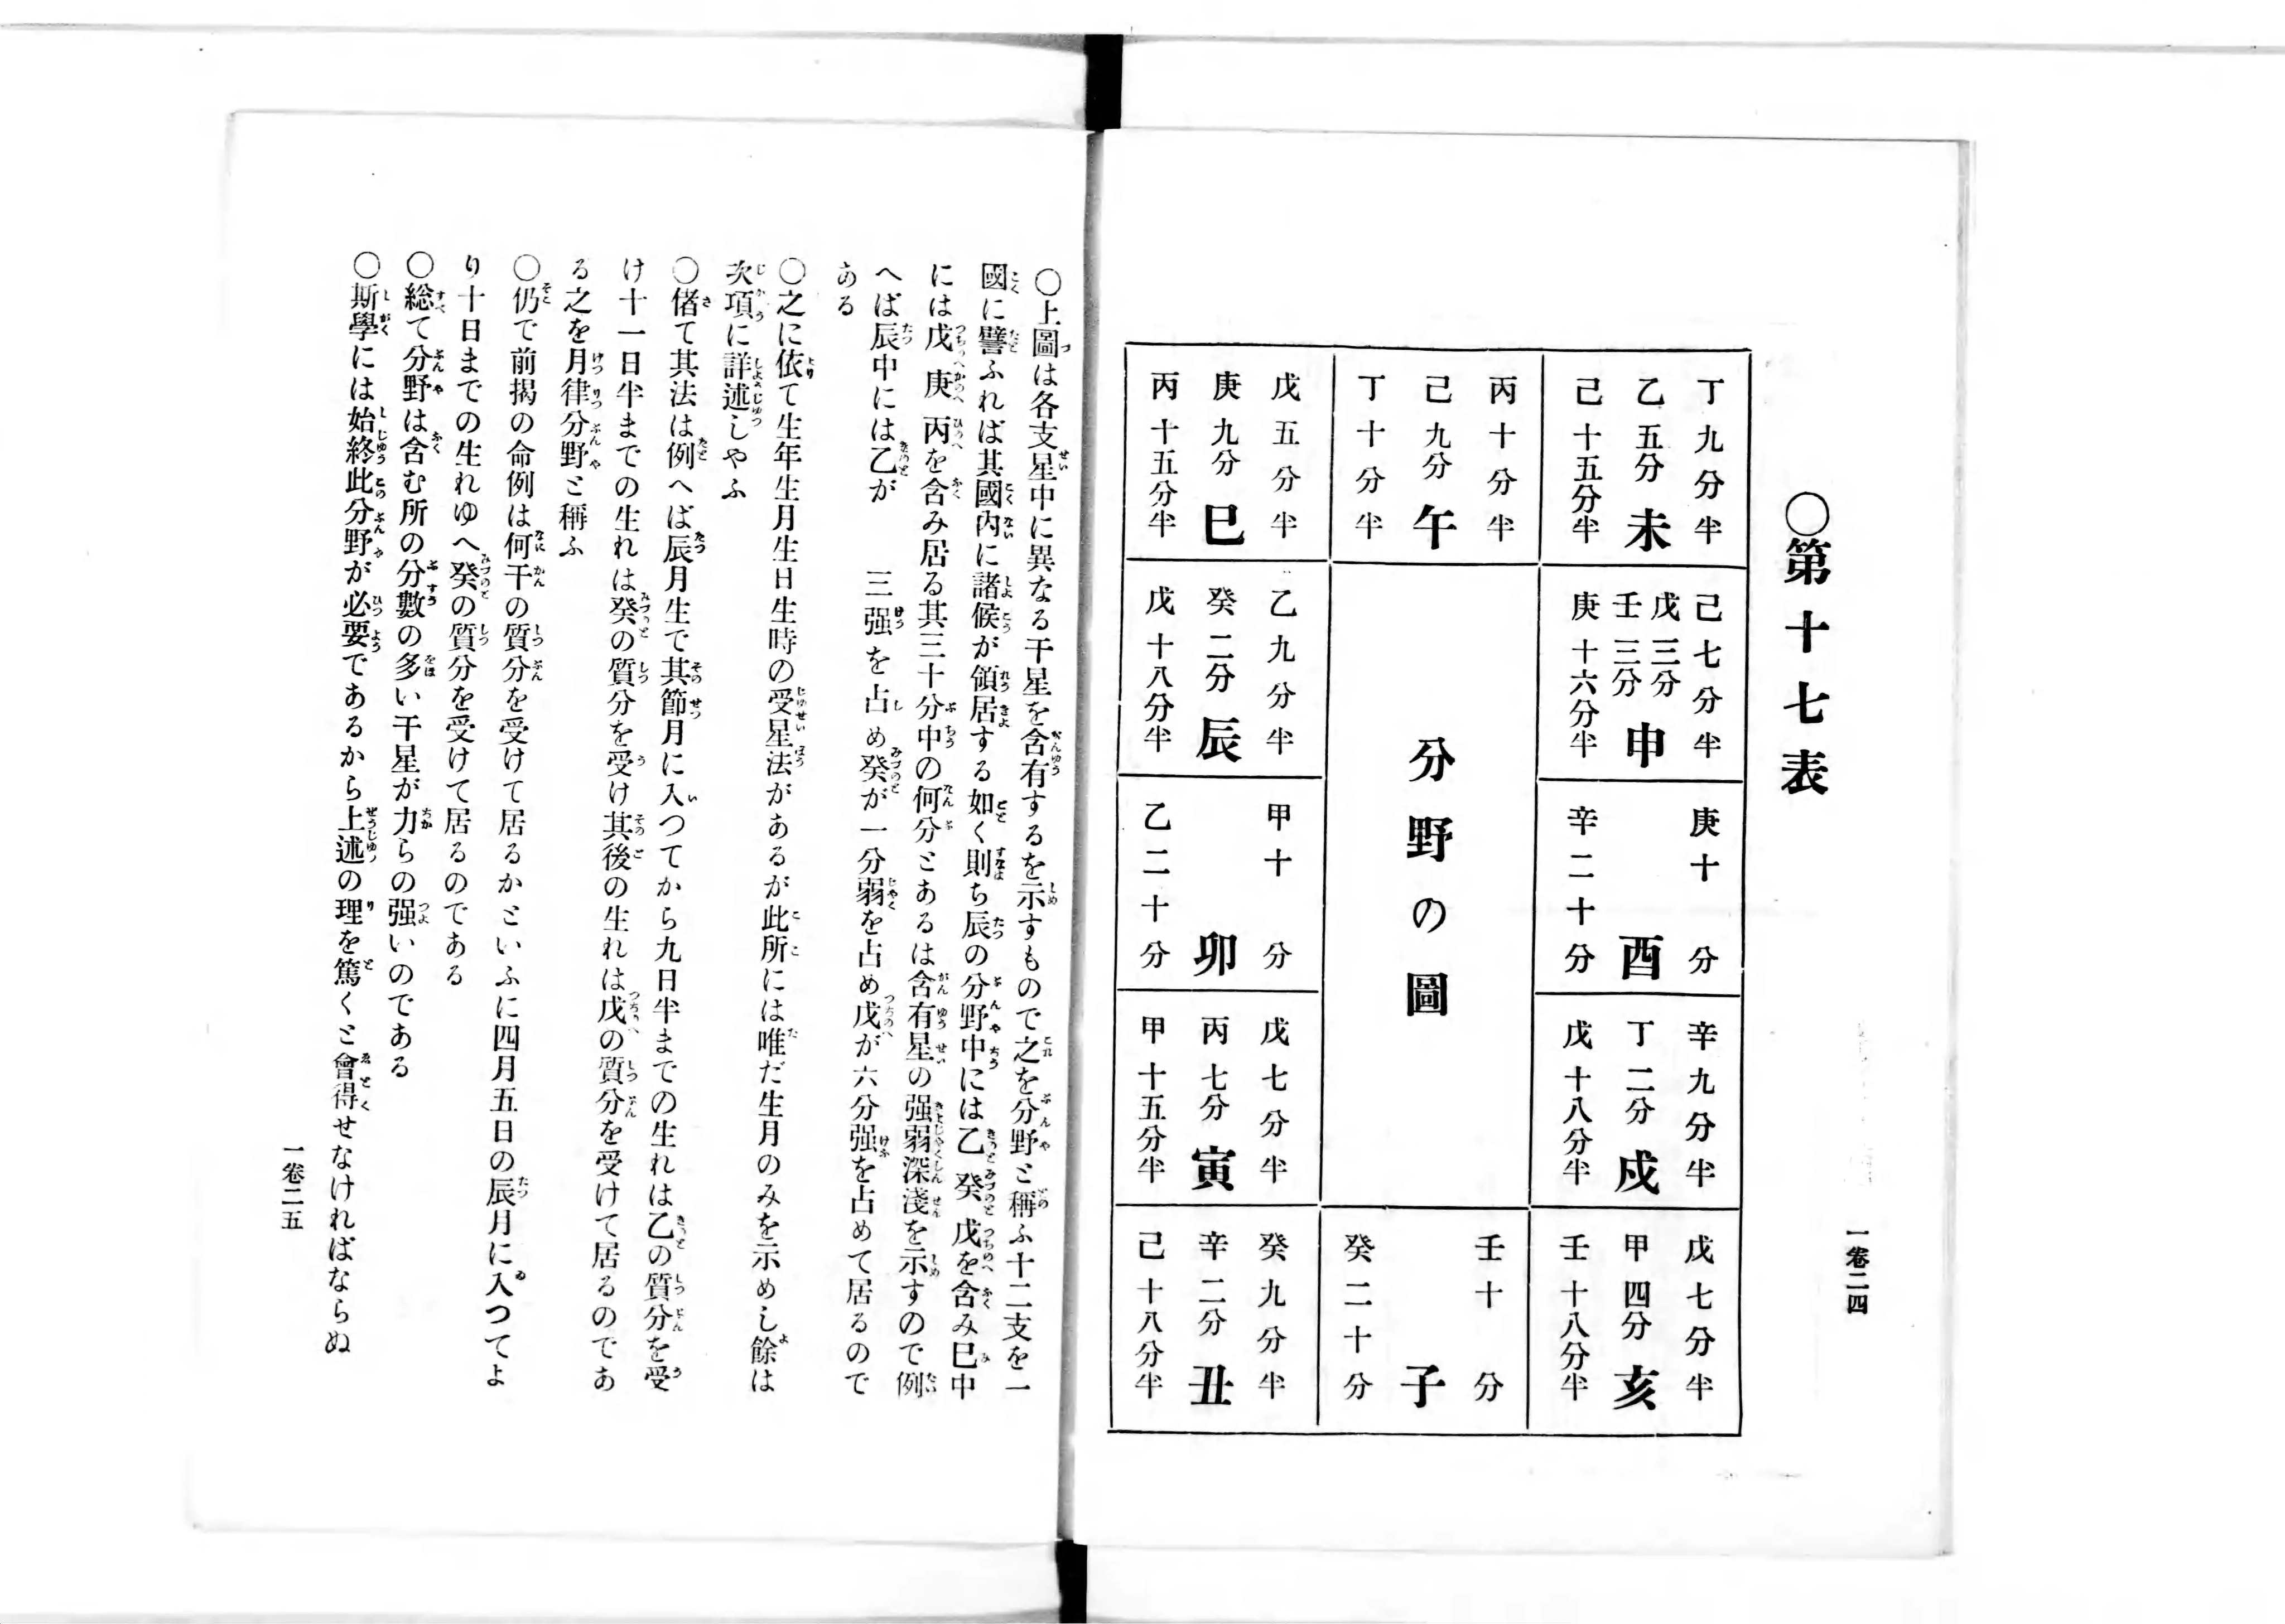 ○第十七表
丁九分半
乙五分
己十五分半
未
丙十分半
己九分
丁十分半
午
戊五分半
庚九分
丙十五分半
巳
己七分半
戊三分
壬三分
庚十六分半
申
乙九分半
癸二分
戊十八分半
辰
分野の圖
庚十分
辛二十分
酉
甲十分
乙二十分
卯
辛九分半
丁二分
戊十八分半
戍
戊七分半
丙七分
甲十五分半
寅
戊七分半
甲四分
壬十八分半
亥
壬十分
癸二十分
子
癸九分半
辛二分
己十八分半
丑
一卷二四
○上圖は各支星中に異なる干星を含有するを示すもので之を分野と稱ふ十二支を一
國に譬ふれば其國內に諸候が領居する如く則ち辰の分野中には乙癸戊を含み巳中
には戊庚丙を含み居る其三十分中の何分とあるは含有星の强弱深淺を示すので例
へば辰中には乙が三强を占め癸が一分弱を占め戊が六分强を占めて居るので
ある
○之に依て生年生月生日生時の受星法があるが此所には唯だ生月のみを示めし餘は
次項に詳述しやふ
○偖て其法は例へば辰月生で其節月に入つてから九日半までの生れは乙の質分を受
け十一日半までの生れは癸の質分を受け其後の生れは戊の質分を受けて居るのであ
る之を月律分野と稱ふ
○仍で前揭の命例は何干の質分を受けて居るかといふに四月五日の辰月に入つてよ
り十日までの生れゆへ癸の質分を受けて居るのである
○総て分野は含む所の分數の多い干星が力らの强いのである
○斯學には始終此分野が必要であるから上述の理を篤くと會得せなければならぬ
一卷二五